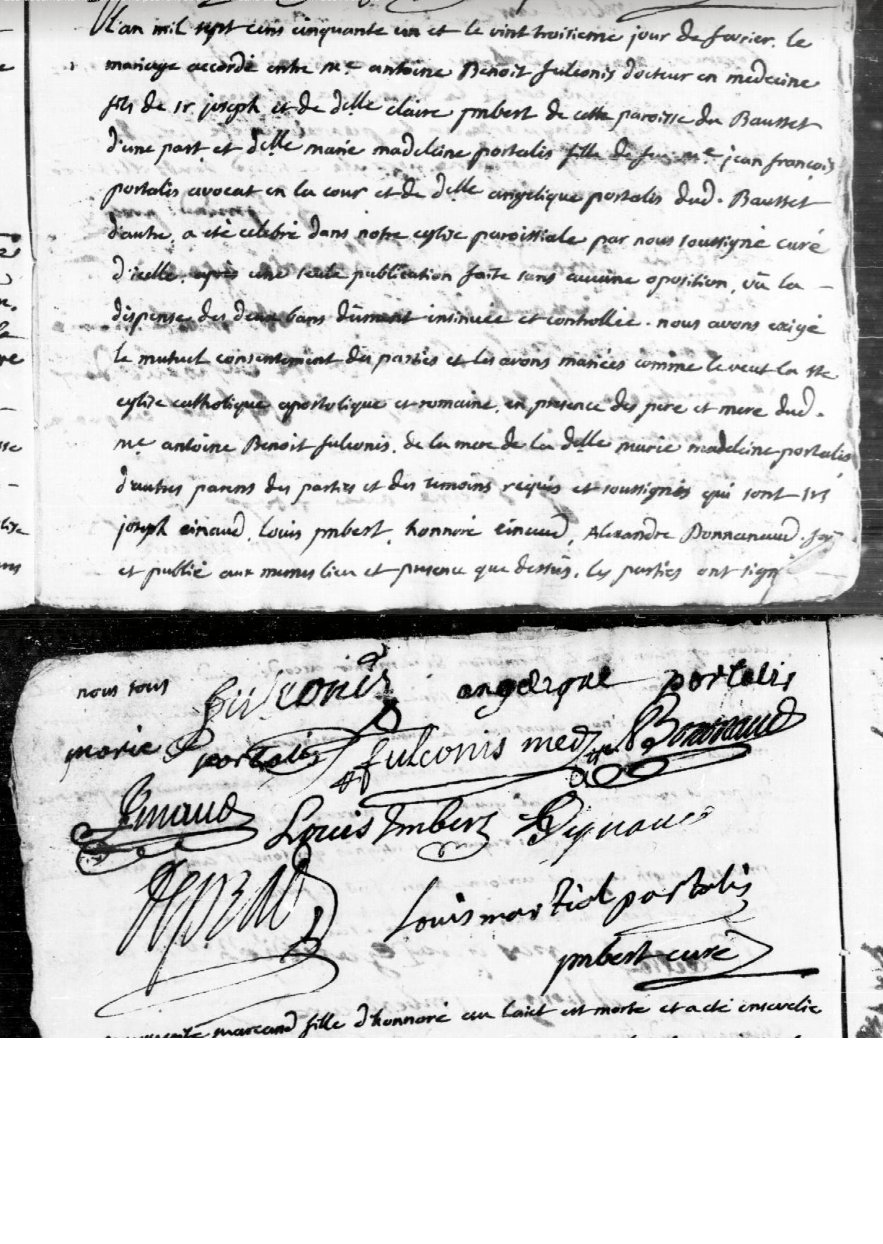 L'an mil sept cens cinquante un et le vint troisieme jour de fevrier. le
mariage accordé entre me antoine Benoit fulconis docteur en medecine
fils de sr joseph et de dlle claire jmbert de cette paroisse du Bausset
d'une part, et dlle marie madeleine portalis fille de feu me jean françois
portalis avocat en la cour et de dlle angelique portalis dud. Bausset
d'autre, a eté celebré dans notre eglise paroissiale par nous soussigné curé
d'icelle, apres une seule publication faite sans aucune oposition, vû la
dispense des deux bans dûment insinuée et controllée. nous avons exigé
le mutuel consentement des parties et les avons mariées comme le veut la ste
eglise catholique apostolique et romaine, en presence des pere et mere dud.
me antoine Benoit fulconis, de la mere de la dlle marie madeleine portalis
d'autres parens des parties et des temoins requis et soussignés qui sont srs
joseph einaud, louis jmbert, honnoré einaud, Alexandre Bonnanaud. fait
et publié aux memes lieu et presence que dessus. les parties ont signé
nous tous
fulconis angelique portalis
marie portalis fulconis med Bonnanaud
Einaud Louis Imbert Eynaud
louis martial portalis
jmbert curé
marcand fille d'honnoré au laict est morte et a eté ensevelie